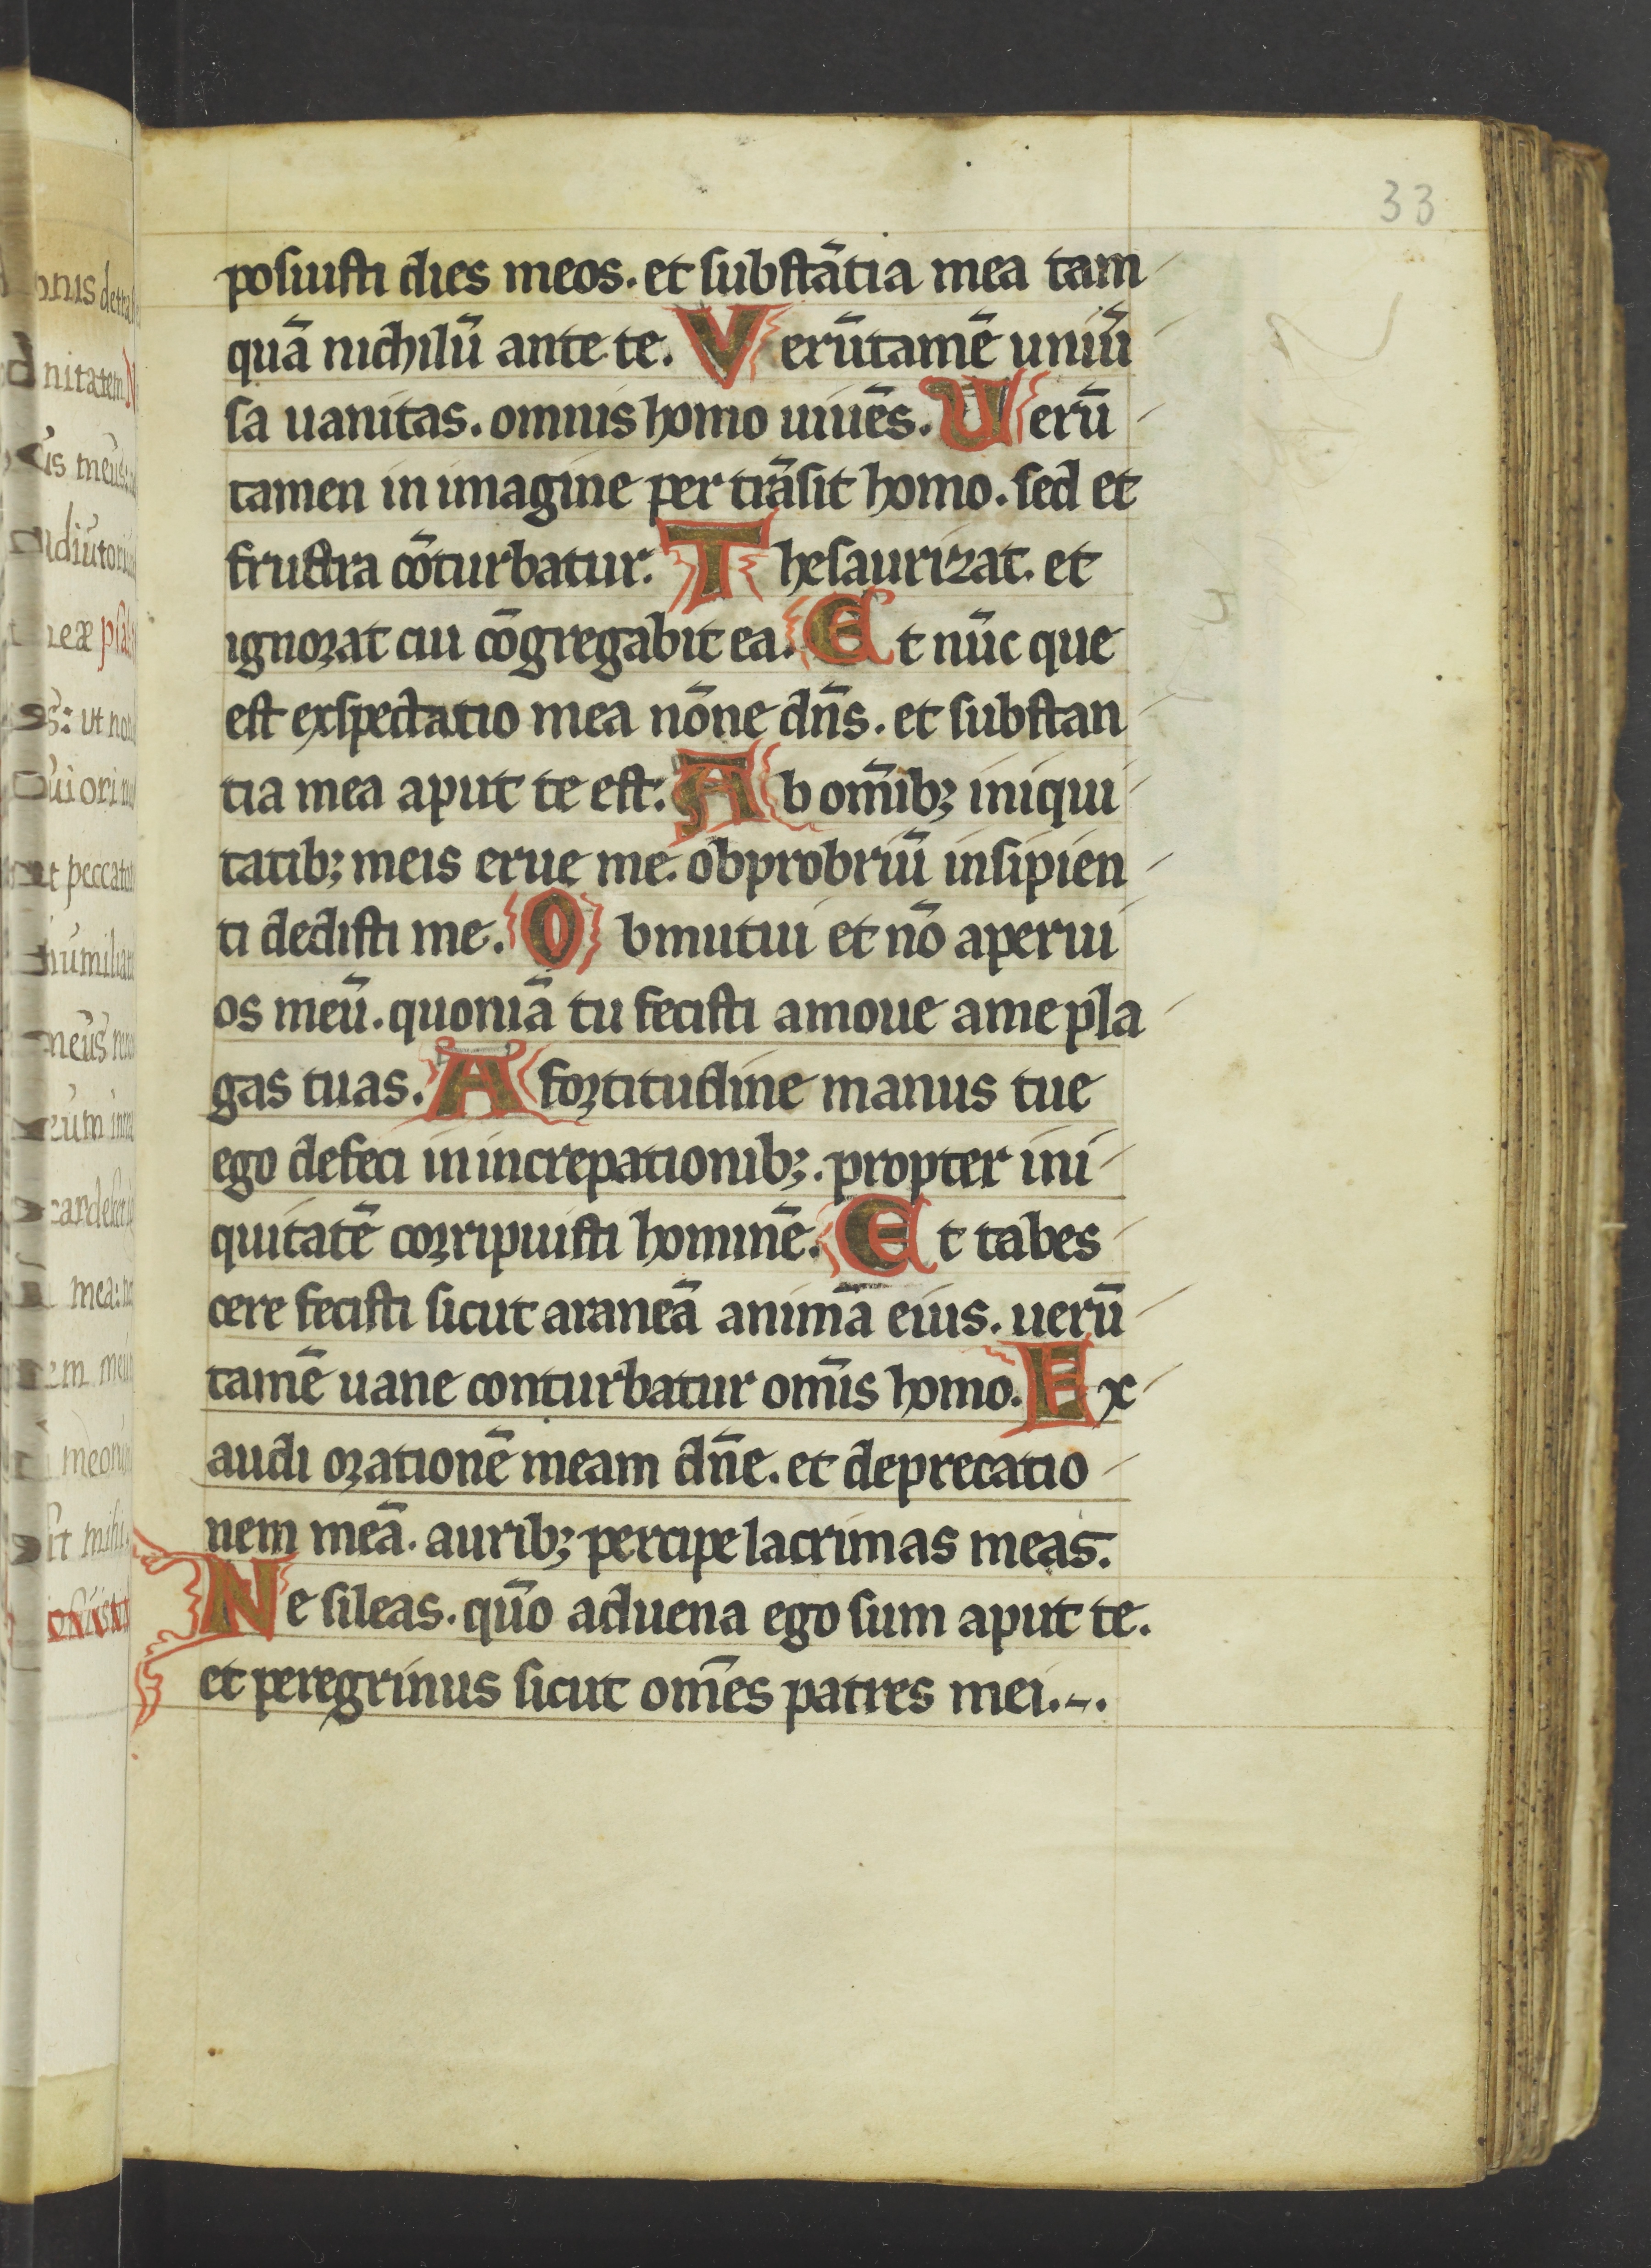 33
posuisti dies meos. et substātia mea tam
quā nichilū ante te. Verūtamē uniū
sa uanitas. omnis homo uiuēs. Uerū
tamen in imagine per trāsit homo. sed et
frustra cōturbatur. Thesaurizat. et
ignorat cui cōgregabit ea. Et nūc que
est exspectatio mea nōne dn̄s. et substan
tia mea aput te est. Ab om̄ib; iniqui
tatib; meis erue me. obprobriū insipien
ti dedisti me. Obmutui et nō aperui
os meū. quoniā tu fecisti amoue ame pla
gas tuas. A fortitudine manus tue
ego defeci in increpationib;. propter ini
quitatē corripuisti hominē. Et tabes
cere fecisti sicut araneā animā eius. uerū
tamē uane conturbatur om̄is homo. Ex
audi orationē meam dn̄e. et deprecatio
nem meā. aurib; percipe lacrimas meas.
Ne sileas. quō aduena ego sum aput te.
et peregrinus sicut om̄es patres mei.